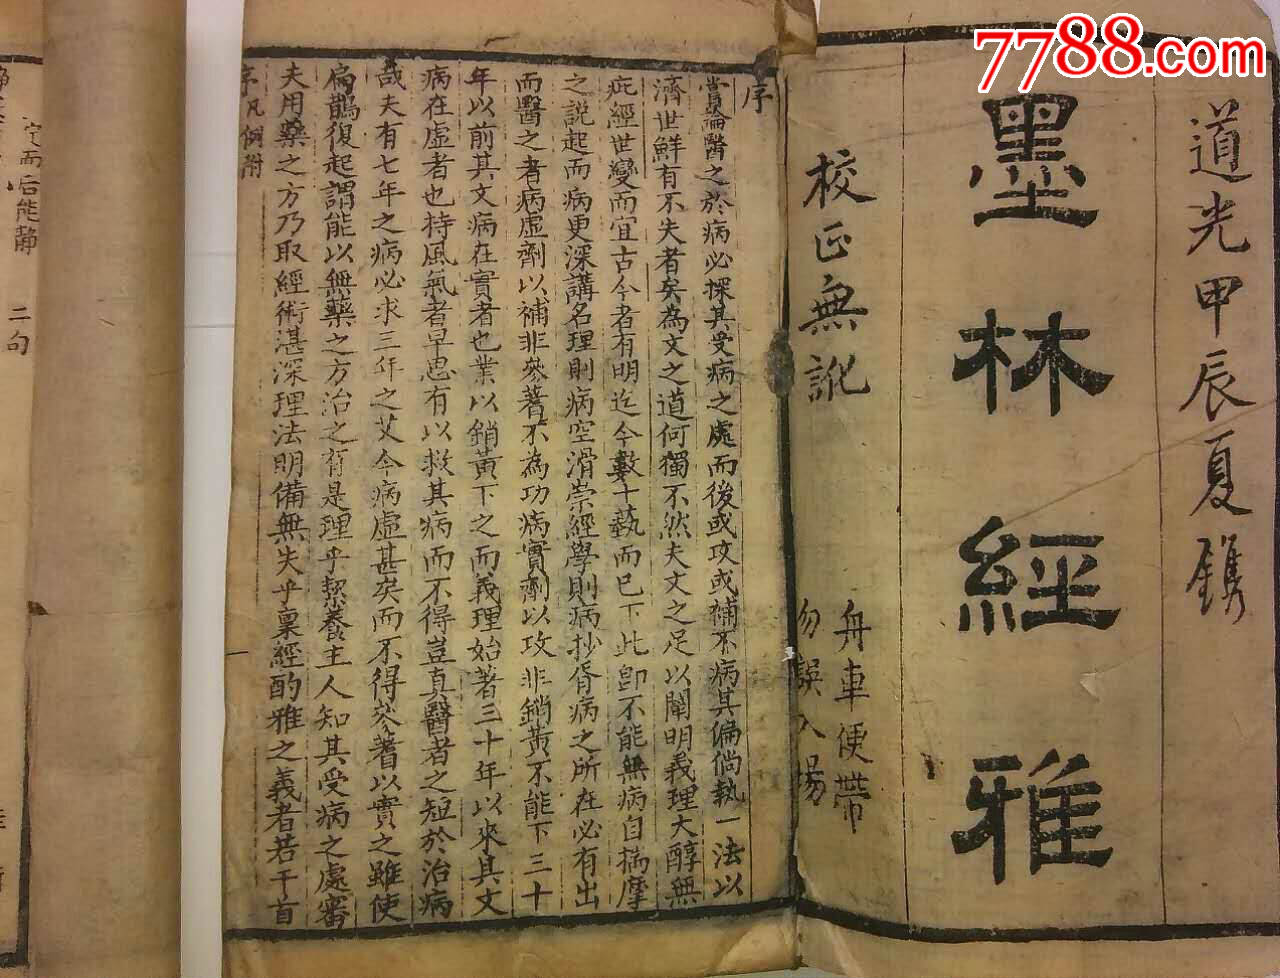 7788.com
道光甲辰夏鐫
墨林經雅
校正無訛
舟車便帶
勿誤入場
序
嘗論醫之於病必探其受病之處而後或攻或補不病其偏倘執一法以
濟世鮮有不失者矣為文之道何獨不然夫文之足以闡明義理大醇無
疵經世變而宜古今者有明迄今數十藝而已下此卽不能無病自揣摩
之説起而病更深講名理則病空滑崇經學則病抄胥病之所在必有出
而醫之者病虛劑以補非參蓍不為功病實劑以攻非銷黃不能下三十
年以前其文病在實者也業以銷黃下之而義理始著三十年以來其文
病在虛者也持風氣者早思有以救其病而不得豈真醫者之短於治病
哉夫有七年之病必求三年之艾今病虛甚矣而不得參蓍以實之雖使
扁鵲復起謂能以無藥之方治之有是理乎絜養主人知其受病之處審
夫用藥之方乃取經術湛深理法明備無失乎稟經酌雅之義者若干首
序凡例附
定而后能靜 二句